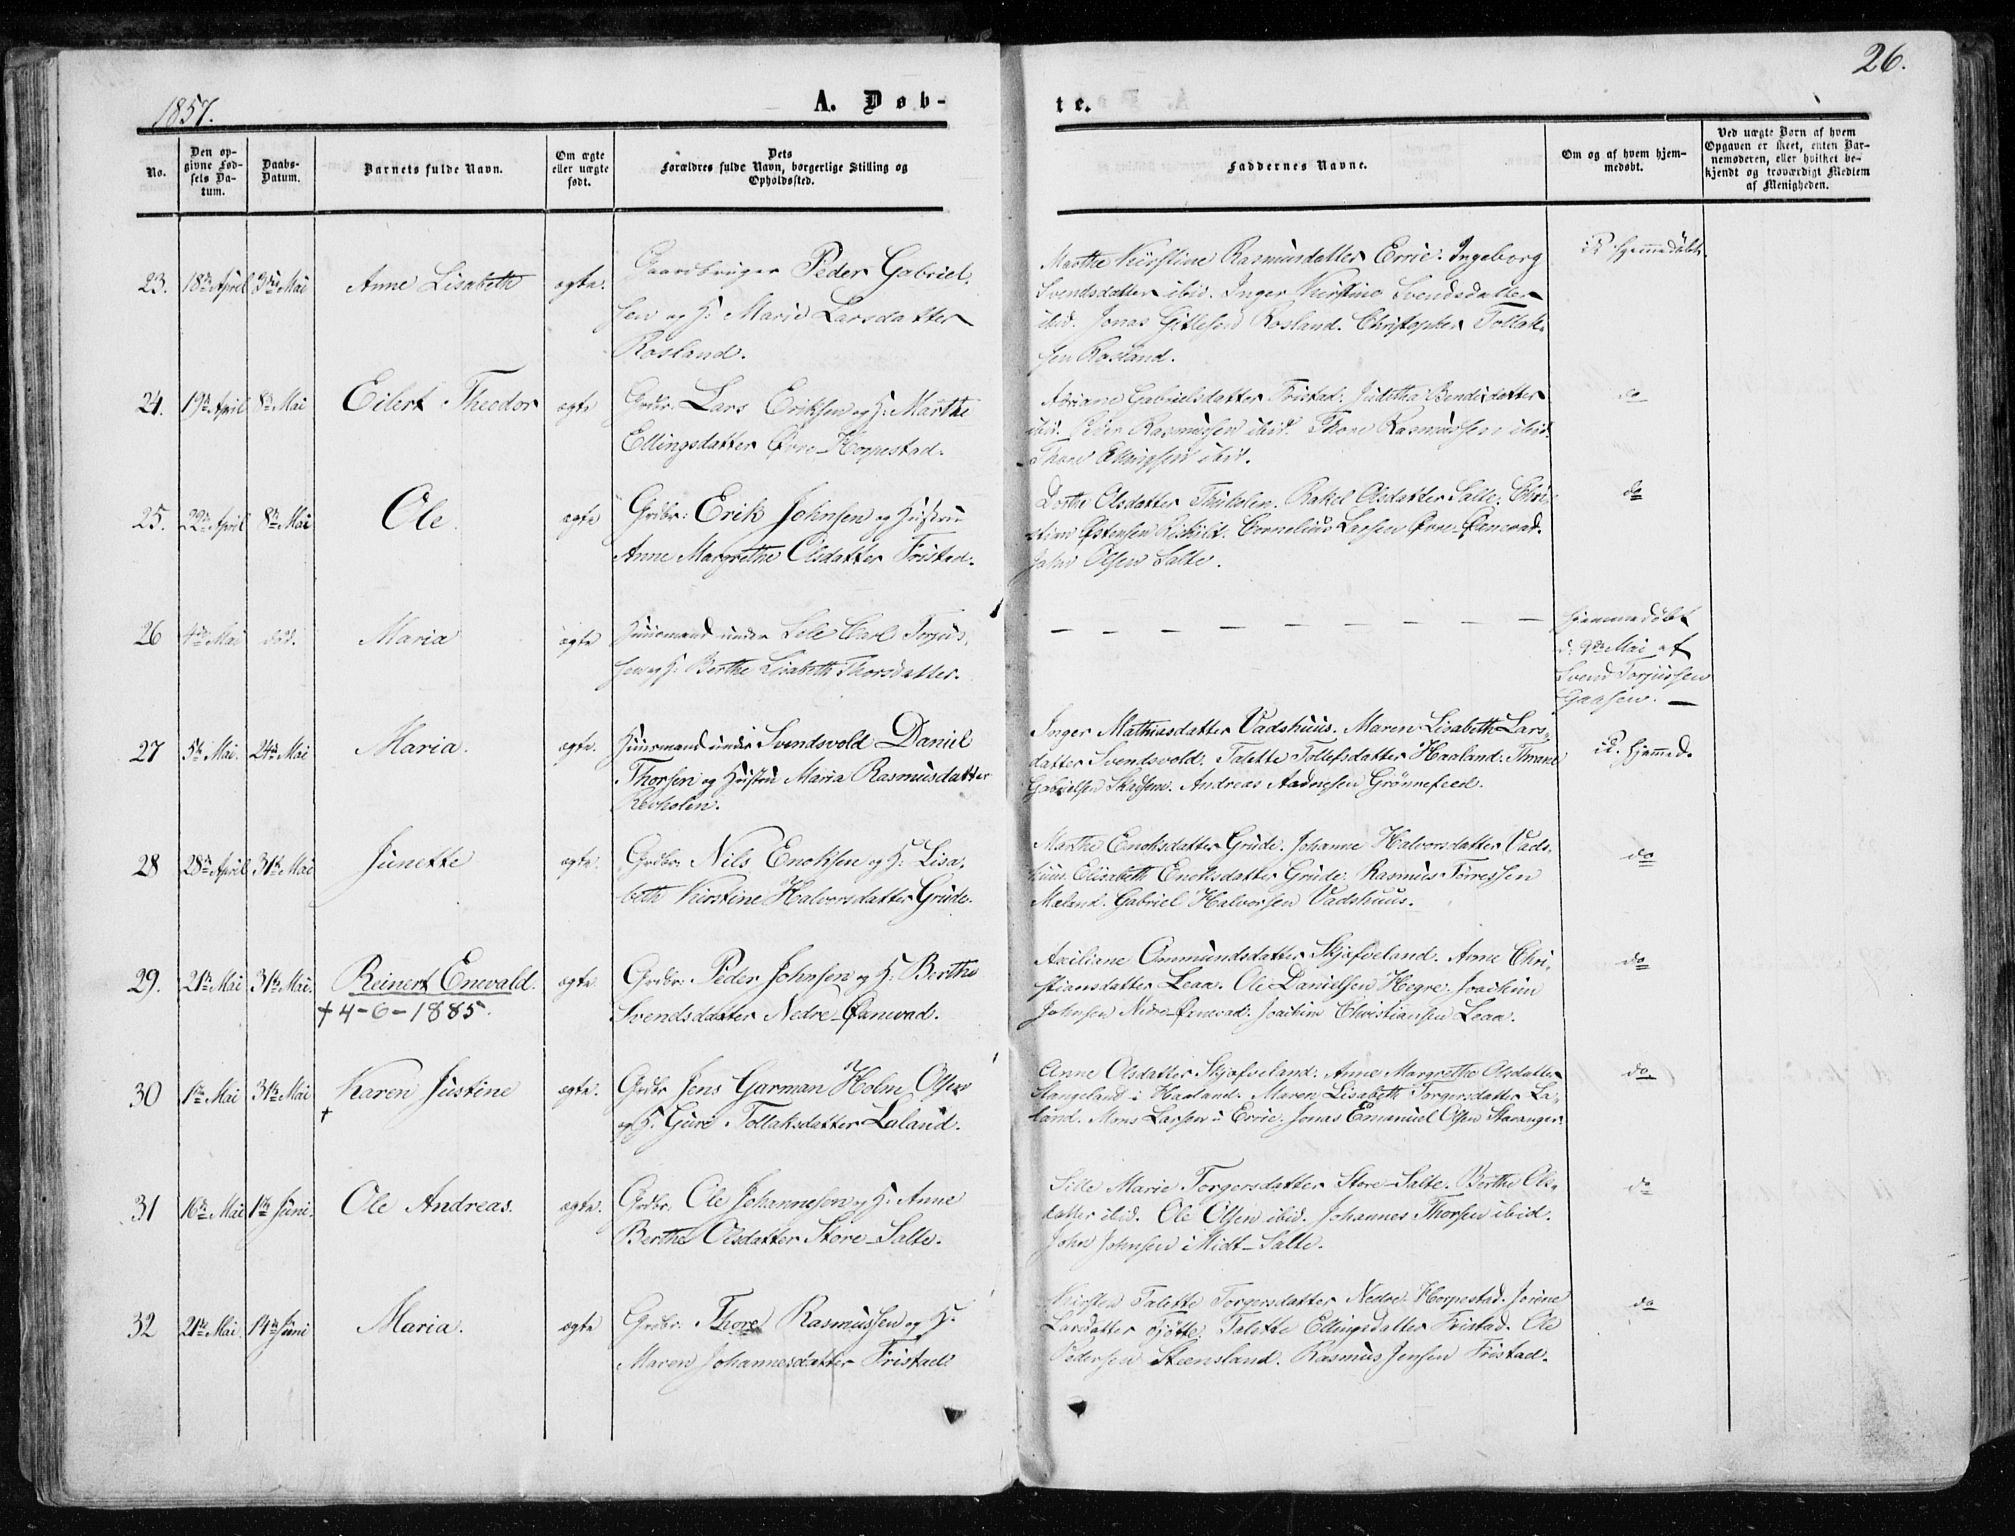 26.
1857.
A. Døb-
te.
No.
Den op-
givne Fød-
sels Da-
tum.
Daabs-
Datum.
Barnets fulde Navn.
Om ægte
eller uægte
født.
Dets
Forældres fulde Navn, borgerlige Stilling og
Opholdssted.
Faddernes Navne.
Om og af hvem hjem-
medøbt.
Ved uægte Børn af hvem
Opgaven er skeet, enten Bar-
nemoderen, eller hvilket be-
kjendt og troværdigt Medlem
af Menigheden.
23. 18de April 3die Mai Anne Lisabeth ægte. Gaardbruger Peder Gabriel-
sen og H: Marie Larsdatter
Rosland.
Marthe Kirstine Rasmusdatter Errie. Ingeborg
Svendsdatter ibid. Inger Kirstine Svendsdatter
ibid. Jonas Gitlesen Rosland. Christopher Tollak-
sen Rosland.
hjemmedøbt.
24. 19de April 8de Mai Eilert Theodor ægte Grdbr. Lars Eriksen og H: Marthe
Ellingsdatter Øvre-Horpestad.
Adriane Gabrielsdatter Fristad. Juditha Bendixdatter
ibid. Peder Rasmussen ibid. Thore Rasmussen ibid.
Thore Ellingsen ibid.
do
25. 22de April 8de Mai Ole. ægte Grdbr: Erik Johnsen og Hustru
Anne Margrethe Olsdatter Fristad.
Dorthe Olsdatter Rakel Olsdatter Salte. Chri-
stian Østensen Cornelius Larsen Øvre-Øxnevad.
John Olsen Salte.
do
26 4de Mai død. Maria ægte Huusmand under Lele Carl Torjus-
sen og H: Berthe Lisabeth Thorsdatter.
Hjemmedøbt
d. Mai af
Svend Torjussen
27 5te Mai. 24de Mai Maria. ægte. Huusmand under Svendsvold Daniel
Thorsen og Hustru Maria Rasmusdatter
Revholen.
Inger Mathiasdatter Vadshuus. Maren Lisabeth Lars-
datter Svendsvold. Talette Tollefsdatter Haaland. Thmme
Gabrielsen Andreas Aadnesen Grønnefeed.
hjemmed.
28 28de April 31te Mai Junette ægte. Grdbr. Nils Enoksen og H: Lisa-
beth Kirstine Halvorsdatter Grude.
Marthe Enoksdatter Grude. Johanne Halvorsdatter Vads-
huus. Elisabeth Enoksdatter Grude. Rasmus Torressen
Meland. Gabriel Halvorsen Vadshuus.
do
29. 21de Mai 31te Mai. Reinert Enevald. ægte. Grdbr: Peder Johnsen og H: Berthe
† 4-6-1885. Svendsdatter Nedre-Øxnevad.
Axeliane Ommundsdatter Skjæfveland. Anne Chri-
stiansdatter Leaa. Ole Danielsen Hegre. Joachim
Johnsen Nedre-Øxnevad. Joachim Christiansen Leaa.
do
30 1ste Mai 31te Mai Karen Justine ægte. Grdbr Jens Garman Holm Olsen
† og H. Guri Tollaksdatter Laland.
Anne Olsdatter Skjæfveland. Anne Margrethe Olsdatter
Stangeland i Haaland. Maren Lisabeth Torgersdatter La-
land. Mons Larsen i Errie. Jonas Emanuel Olsen Stavanger.
do
31 16de Mai 1ste Juni. Ole Andreas. ægte. Grdbr. Ole Johannesen og H: Anne
Berthe Olsdatter Store-Salte.
Sille Marie Torgersdatter Store-Salte. Berthe Ols-
datter ibid. Ole Olsen ibid. Johannes Thorsen ibid.
John Johnsen i Midt-Salte.
do
32 21de Mai. 14de Juni Maria. ægte Grdbr: Thore Rasmussen og H:
Maren Johannesdatter Fristad.
Kirsten Talette Torgersdatter Nedre Horpestad. Jorine
Larsdatter Tjøtte. Talette Ellingsdatter Fristad. Ole
Pedersen Steensland. Rasmus Jensen Fristad.
do